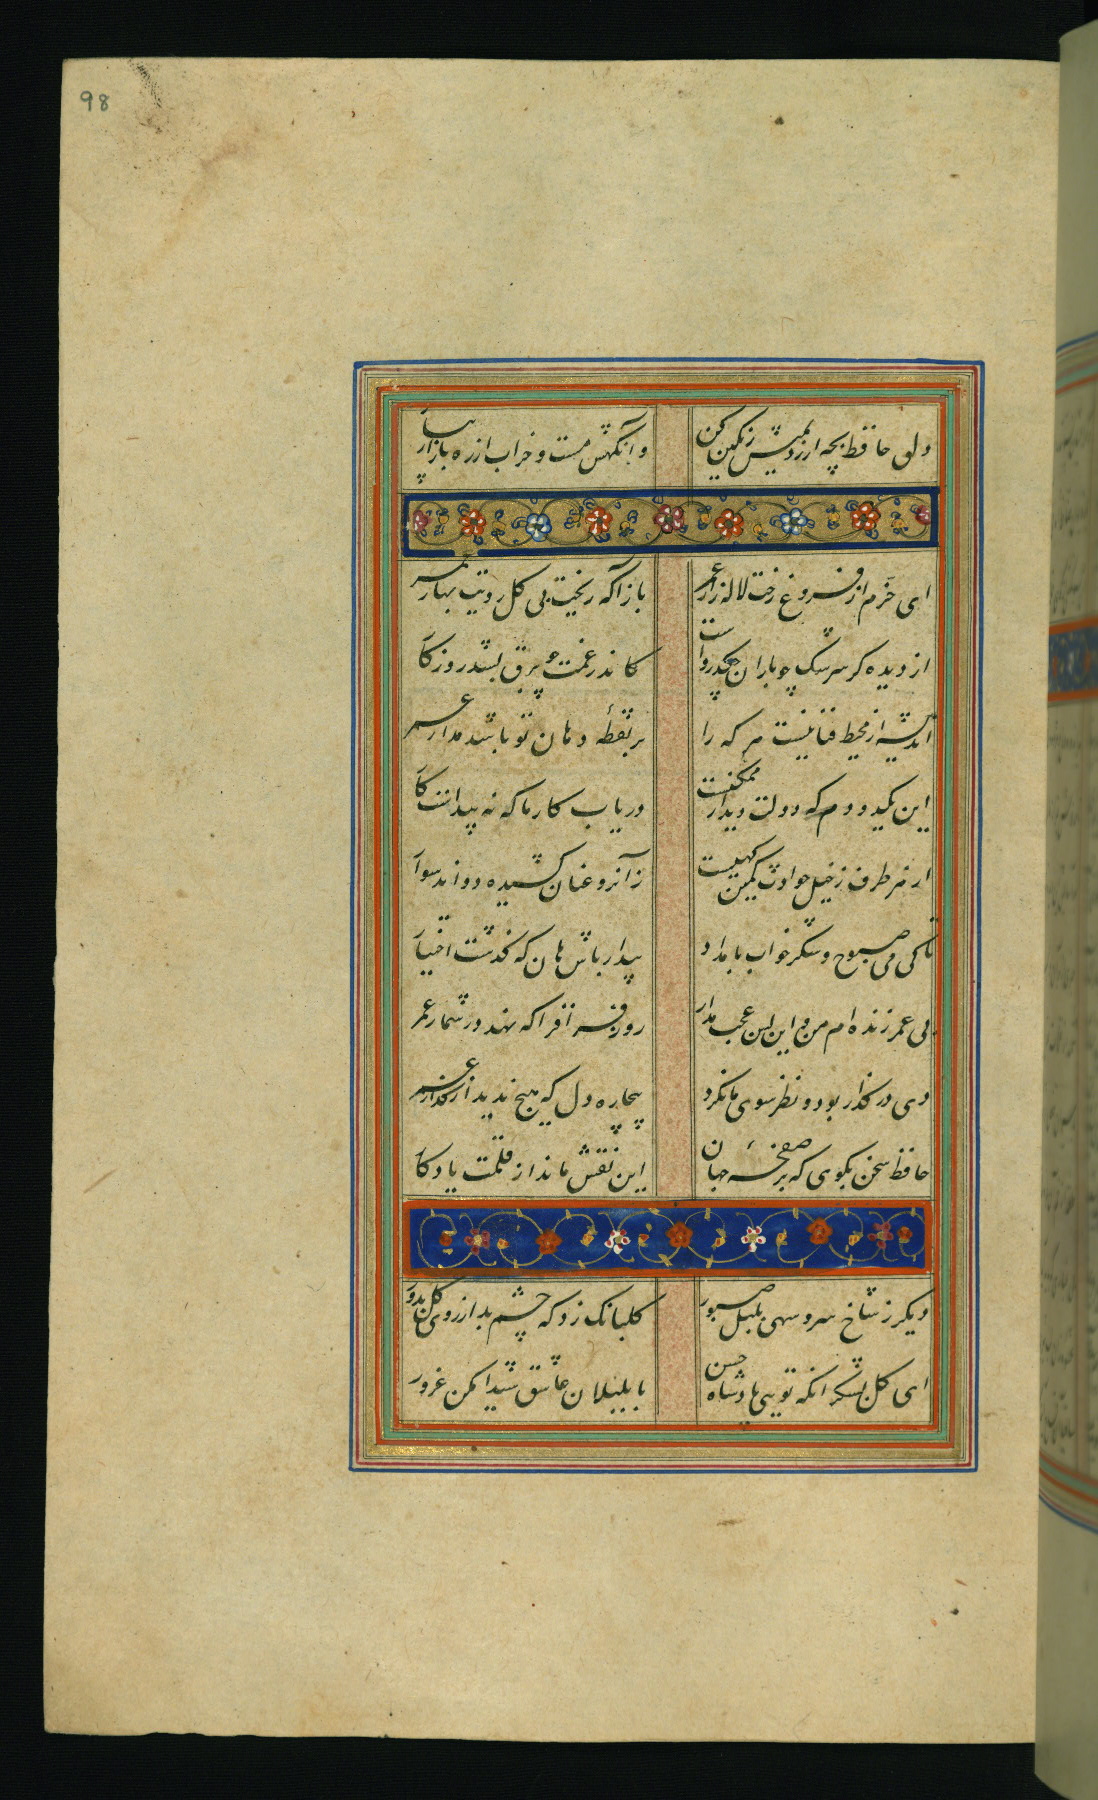 98
دلق حافظ بچه ارزد بمیش رنگین کن
وآنگهش مست و خراب از ره بازار بیا
ای خرم از فروغ رخت لاله زار عمر
بازآ که ریخت بی گل رویت بهار عمر
از دیده کر سرشک چو باران چکد رواست
کاندر غمت چو برق بشد روزگا
اندیشه از محیط فنا نیست هر که را
بر نقطه دهان تو باشد مدار عمر
این یکدو دم که دولت دیدار ممکنست
دریاب کار ما که نه پیداست کا
از هر طرف ز خیل حوادث کمین کهیست
زآنرو عنان کشیده دواند سوا
تا کی می صبوح و شکر خواب بامداد
بیدار باش هان که گذشت اختیا
بی عمر زنده ام من و این بس عجب مدار
روز فراق را که نهد در شمار عمر
دی در گذار بود و نظر سوی ما نکرد
بیچاره دل که هیچ ندید از گذار عمر
حافظ سخن بگوی که بر صفحه جهان
این نقش ماند از قلمت یادکا
دیگر ز شاخ سرو سهی بلبل صبور
گلبانگ زد که چشم بد از روی گل بدور
ای گل بشکر آنکه تویی پادشاه حسن
با بلبلان عاشق شیدا مکن غرور